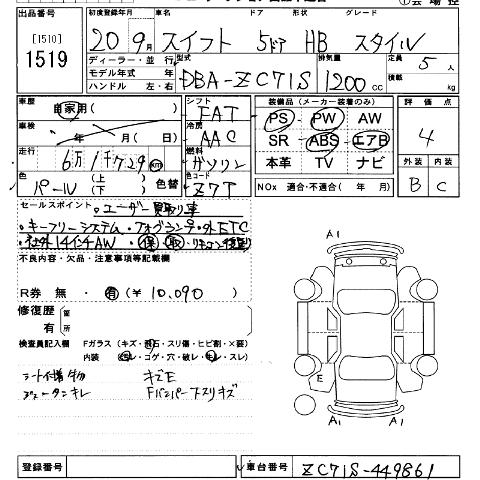 出品番号 初度登録年月 車名 ドア 形状 グレード
[1510] 20 9月 スイフト 5ドア HB スタイル
1519
ディーラー・並行 型式 排気量 定員 5 人
モデル年式 年 DBA-ZC71S 1200 cc 積載 kg
ハンドル 左・右
車歴 自家用( ) シフト FAT 装備品(メーカー装着のみ) 評価点
車検 年 月( ) 冷房 AAC PS PW AW 4
SR ABS エアB
走行 6万1千729 燃料 ガソリン 本革 TV ナビ 外装 内装
色 パール (上 ) (下 ) 色替 色コード Z7T NOx 適合・不適合( 年 月) B C
セールスポイント ・ユーザー買取り車
・キーフリーシステム・フォグランプ・社外ETC
・社外14インチAW・保・取・リモコン
不良内容・欠品・注意事項等記載欄
R券 無・有(¥10,090)
修復歴 箇所
有
検査員記入欄 Fガラス(キズ・飛石・スリ傷・ヒビ割・×要)
内装 (汚れ・コゲ・穴・破レ・モレ・スレ)
キズE
Fバンパー下スリキズ
A1
A1
E
A1 A1
登録番号 車台番号 ZC71S-449861